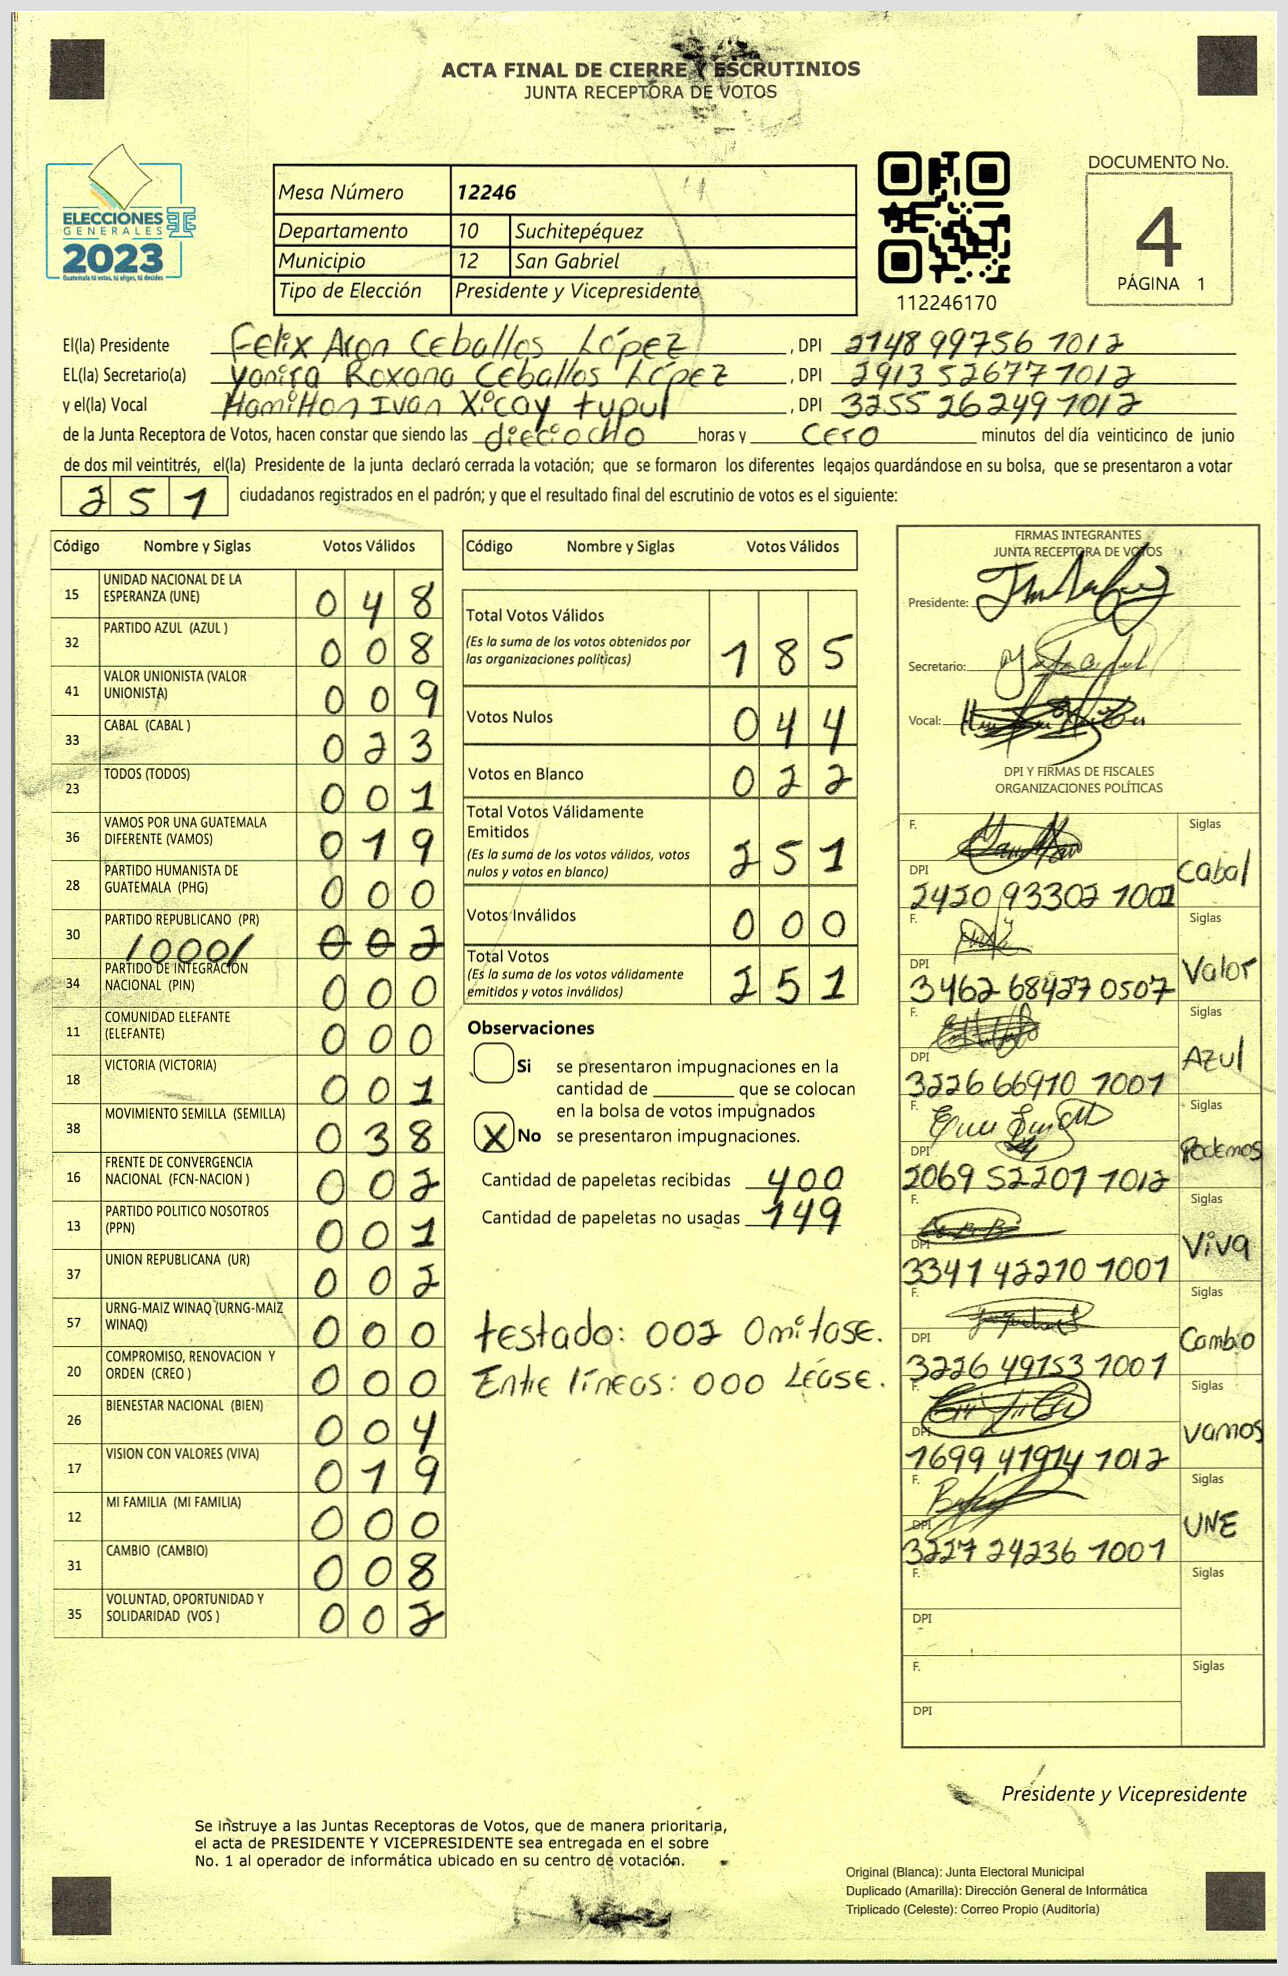 ACTA FINAL DE CIERRE Y ESCRUTINIOS
JUNTA RECEPTORA DE VOTOS
ELECCIONES
GENERALES
2023
Guatemala tú votas, tú eliges, tú decides
Mesa Número 12246
Departamento 10 Suchitepéquez
Municipio 12 San Gabriel
Tipo de Elección Presidente y Vicepresidente
112246170
DOCUMENTO No.
4
PÁGINA 1
El(la) Presidente Felix Aron Ceballos López , DPI 2148 99756 1012
EL(la) Secretario(a) Yanira Roxana Ceballos López , DPI 2913 52677 1012
y el(la) Vocal Hamilton Ivan Xicay tupul , DPI 3255 26249 1012
de la Junta Receptora de Votos, hacen constar que siendo las dieciocho horas y cero minutos del día veinticinco de junio
de dos mil veintitrés, el(la) Presidente de la junta declaró cerrada la votación; que se formaron los diferentes legajos guardándose en su bolsa, que se presentaron a votar
251 ciudadanos registrados en el padrón; y que el resultado final del escrutinio de votos es el siguiente:
Código Nombre y Siglas Votos Válidos
15 UNIDAD NACIONAL DE LA ESPERANZA (UNE) 048
32 PARTIDO AZUL (AZUL ) 008
41 VALOR UNIONISTA (VALOR UNIONISTA) 009
33 CABAL (CABAL ) 023
23 TODOS (TODOS) 001
36 VAMOS POR UNA GUATEMALA DIFERENTE (VAMOS) 019
28 PARTIDO HUMANISTA DE GUATEMALA (PHG) 000
30 PARTIDO REPUBLICANO (PR) /000/ 002
34 PARTIDO DE INTEGRACION NACIONAL (PIN) 000
11 COMUNIDAD ELEFANTE (ELEFANTE) 000
18 VICTORIA (VICTORIA) 001
38 MOVIMIENTO SEMILLA (SEMILLA) 038
16 FRENTE DE CONVERGENCIA NACIONAL (FCN-NACION ) 002
13 PARTIDO POLITICO NOSOTROS (PPN) 001
37 UNION REPUBLICANA (UR) 002
57 URNG-MAIZ WINAQ (URNG-MAIZ WINAQ) 000
20 COMPROMISO, RENOVACION Y ORDEN (CREO ) 000
26 BIENESTAR NACIONAL (BIEN) 004
17 VISION CON VALORES (VIVA) 019
12 MI FAMILIA (MI FAMILIA) 000
31 CAMBIO (CAMBIO) 008
35 VOLUNTAD, OPORTUNIDAD Y SOLIDARIDAD (VOS ) 002
Código Nombre y Siglas Votos Válidos
Total Votos Válidos 185
(Es la suma de los votos obtenidos por
las organizaciones políticas)
Votos Nulos 044
Votos en Blanco 022
Total Votos Válidamente
Emitidos 251
(Es la suma de los votos válidos, votos
nulos y votos en blanco)
Votos Inválidos 000
Total Votos 251
(Es la suma de los votos válidamente
emitidos y votos inválidos)
Observaciones
Si se presentaron impugnaciones en la
cantidad de ________ que se colocan
en la bolsa de votos impugnados
X No se presentaron impugnaciones.
Cantidad de papeletas recibidas 400
Cantidad de papeletas no usadas 149
testado: 002 Omitase.
Entre líneas: 000 Léase.
FIRMAS INTEGRANTES
JUNTA RECEPTORA DE VOTOS
Presidente:
Secretario:
Vocal:
DPI Y FIRMAS DE FISCALES
ORGANIZACIONES POLÍTICAS
F. Siglas
DPI Cabal
2420 93302 1001
F. Siglas
DPI Valor
3462 68427 0507
F. Siglas
DPI Azul
3226 66910 1001
F. Siglas
DPI Podemos
2069 52207 1012
F. Siglas
DPI Viva
3341 42210 1001
F. Siglas
DPI Cambio
3226 49153 1001
F. Siglas
DPI vamos
1699 41914 1012
F. Siglas
DPI UNE
3227 24236 1001
F. Siglas
DPI
F. Siglas
DPI
Presidente y Vicepresidente
Se instruye a las Juntas Receptoras de Votos, que de manera prioritaria,
el acta de PRESIDENTE Y VICEPRESIDENTE sea entregada en el sobre
No. 1 al operador de informática ubicado en su centro de votación.
Original (Blanca): Junta Electoral Municipal
Duplicado (Amarilla): Dirección General de Informática
Triplicado (Celeste): Correo Propio (Auditoría)